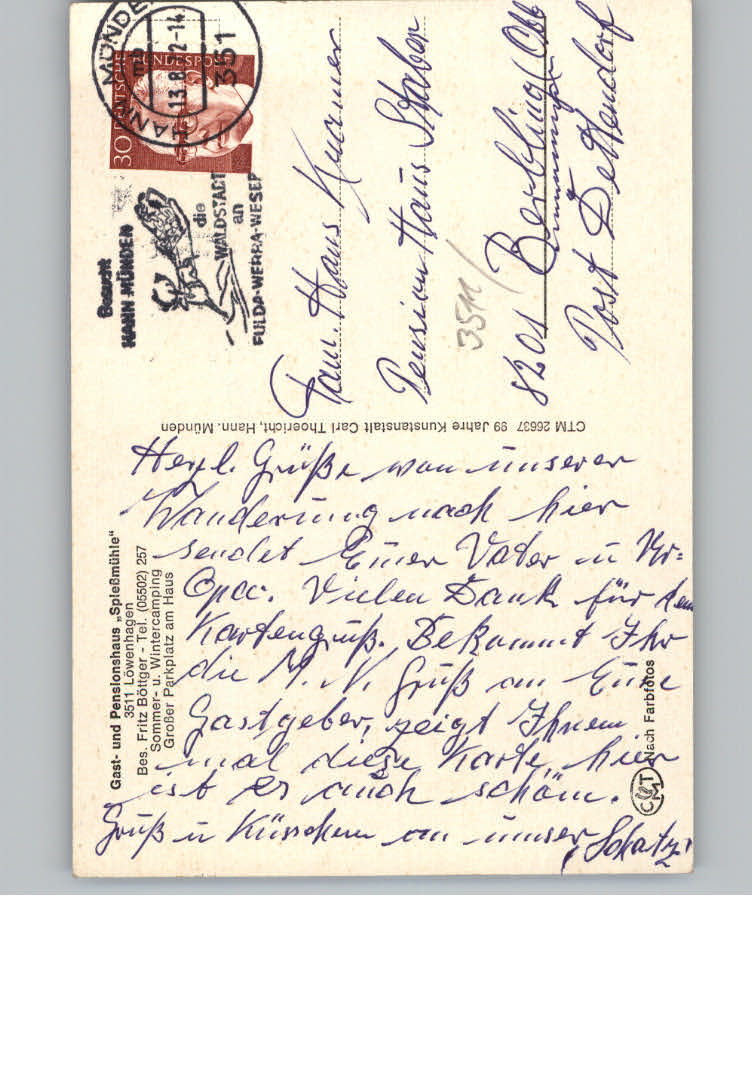 Gast- und Pensionshaus „Spießmühle“
3511 Löwenhagen
Bes. Fritz Böttger - Tel. (05502) 257
Sommer- u. Wintercamping
Großer Parkplatz am Haus
Herzl. Grüße von unserer
Wanderung nach hier
sendet Euer Vater u
Opa. Vielen Dank für den
Kartengruß. Bekommt Ihr
die M. N. Gruß an Eure
Gastgeber, zeigt Ihnen
mal diese Karte, hier
ist es auch schön.
Gruß u Küsschen an unser
"Schatz"
CTM 26637 99 Jahre Kunstanstalt Carl Thoericht, Hann. Münden
CTM Nach Farbfotos
Besucht
HANN MÜNDEN
die
WALDSTADT
an
FULDA-WERRA-WESER
30 DEUTSCHE BUNDESPOST
HANN MÜNDE
mb
13.8. 2-14
351
Fam. Hans Kurmer
Pension Haus Staber
3511/
8201 Berbling Obb
Post Dettendorf